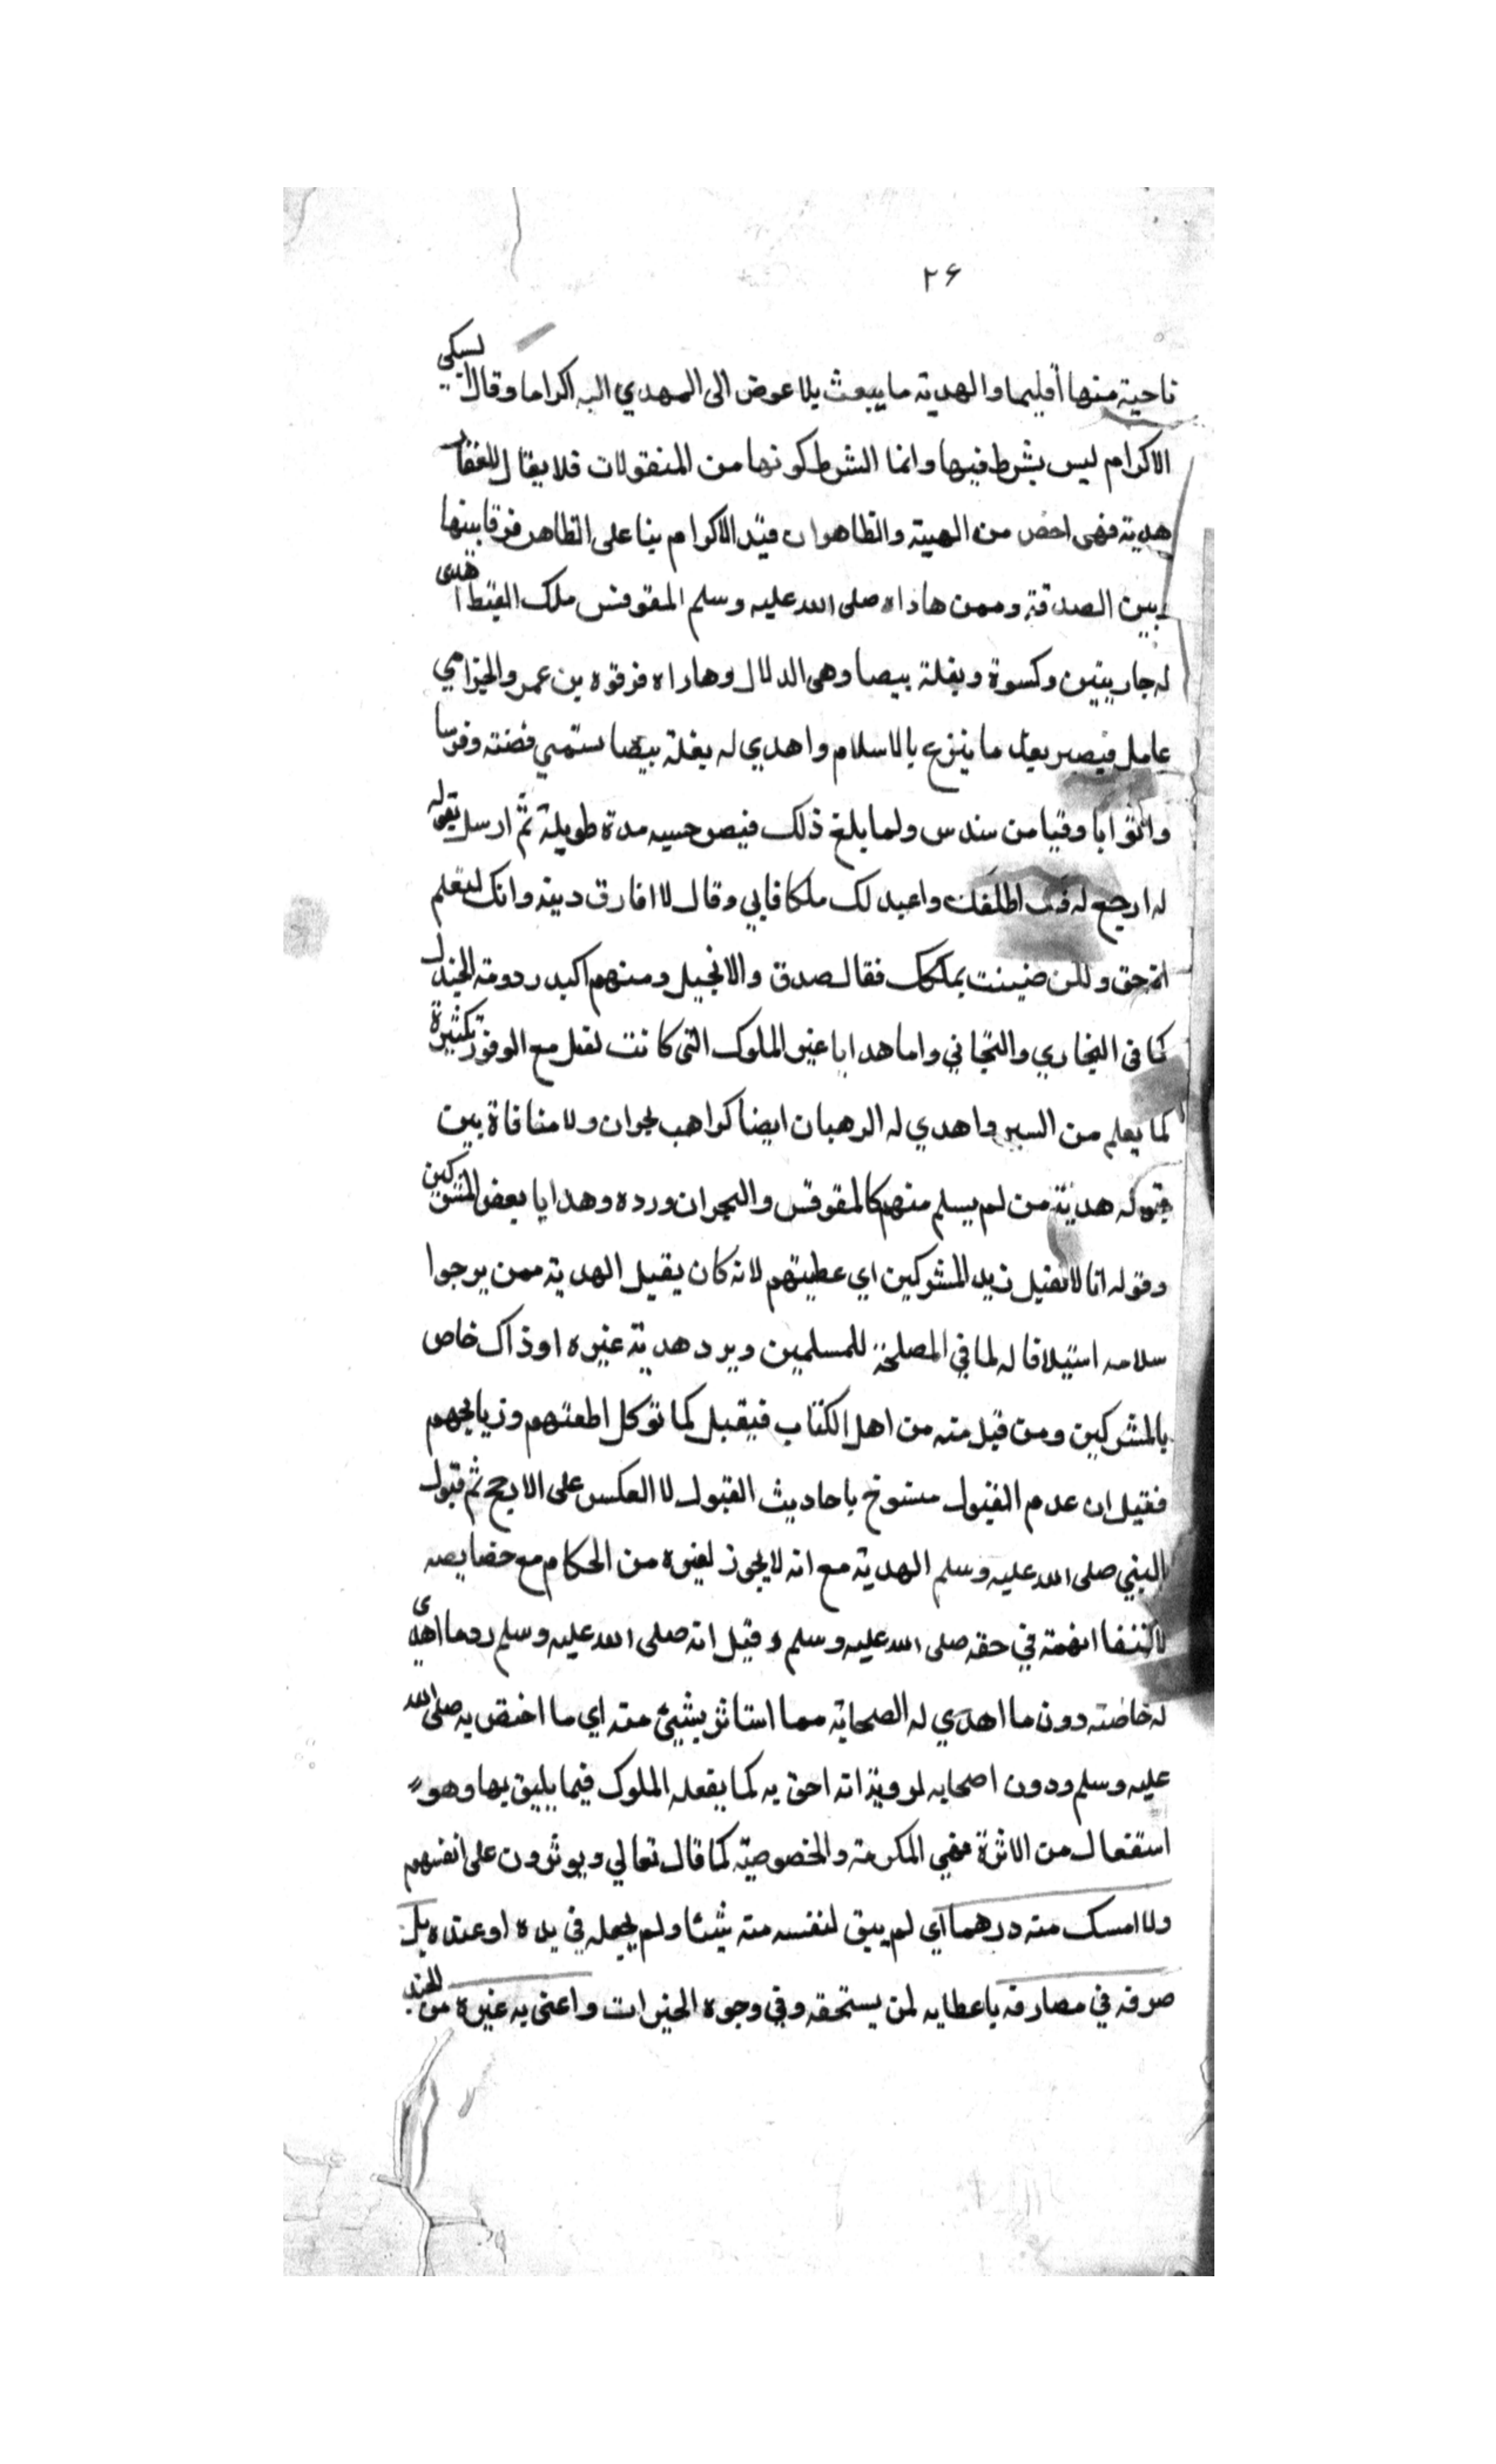 ٢٤
ناحية منها أقليما والهدية ما يبعث بلا عوض الى المهدي اليه اكراما وقال السبكي
الاكرام ليس بشرط فيها وانما الشرط كونها من المنقولات فلا يقال للعقار
هدية فهى اخص من الهبة والظاهر ان قيد الاكرام بنا على الظاهر فرقا بينها
وبين الصدقة وممن هاداه صلى الله عليه وسلم المقوقس ملك القبط اهدى
له جاريتين وكسوة وبغلة بيضا وهى الدلال وهاداه فرقوه بن عمرو الجزامي
عامل قيصر بعد ما ينزع بالاسلام واهدي له بغلة بيضا ستمي فضته وفرسا
واثوابا وقبا من سندس ولما بلغ ذلك قيصر حبسه مدة طويلة ثم ارسل يقول
له ارجع له اطلقك واعيد لك ملكك فابي وقال لا افارق دينه وانك لتعلم
انه حق ولكن ضينت بملكك فقال صدق والانجيل ومنهم اكيدر دومة الجندل
كما في البخاري والتجاني واما هدايا غير الملوك التى كانت تقبل مع الوفود كثيرة
كما يعلم من السير واهدي له الرهبان ايضا كراهب نجران ولا منافاة بين
قبوله هدية من لم يسلم منهم كالمقوقس والنجران ورده وهدايا بعض المشركين
وقوله انا لا نقبل زبد المشركين اي عطيتهم لانه كان يقبل الهدية ممن يرجوا
سلامه استيلافا له لما في المصلحة للمسلمين ويرد هدية غيره او ذاك خاص
بالمشركين ومن قبل منه من اهل الكتاب فيقبل كما توكل اطعتهم وزبايحهم
فقيل ان عدم القبول منسوخ باحاديث القبول لا العكس على الارجح ثم قبول
النبي صلى الله عليه وسلم الهدية مع انه لا يجوز لغيره من الحكام مع خصايصه
لانتفا التهمة في حقه صلى الله عليه وسلم وقيل انه صلى الله عليه وسلم رد ما اهدى
له خاصته دون ما اهدي له الصحابة مما استاثر بشيئ منه اي ما اختص به صلى الله
عليه وسلم ودون اصحابه لو ويذانه احق به كما يفعله الملوك فيما يليق بها وهو
استفعال من الاثرة فهي المكرمة والخصوصية كما قال تعالي ويوثرون على انفسهم
ولا امسك منه درهما اي لم يبق لنفسه منه شيئا ولم يجعله في يده او عنده بل
صرفه في مصارفه باعطايه لمن يستحقه وفي وجوه الخيرات واغنى به غيره من الجند